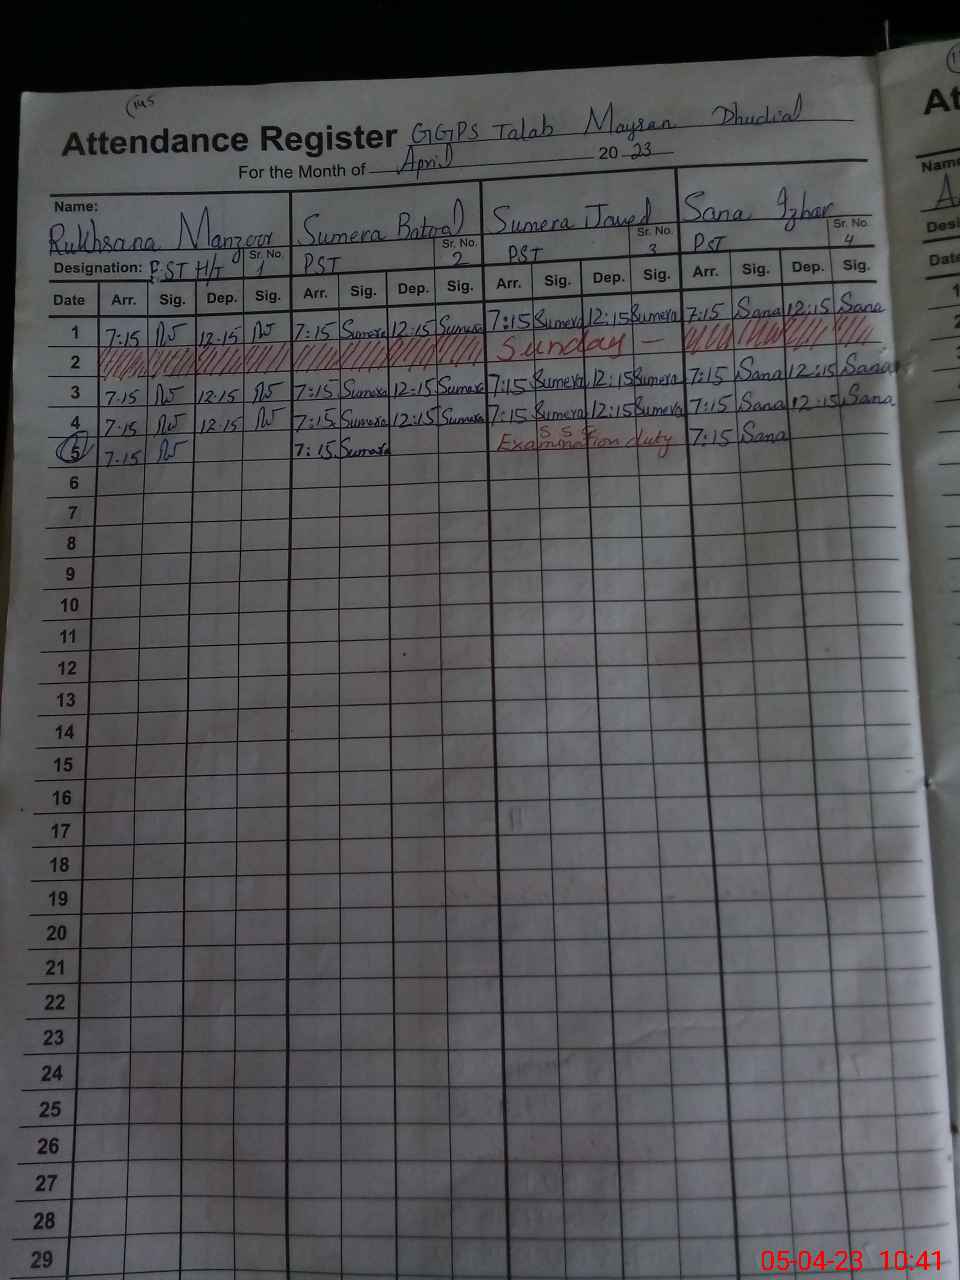 145
Attendance Register GGPS Talab Maysan Dhudial
For the Month of April 2023
Name:
Rukhsana Manzoor Sumera Batool Sumera Javed Sana Izhar
Sr. No. Sr. No. Sr. No. Sr. No.
Designation: P.ST H/T 1 PST 2 PST 3 PST 4
Date Arr. Sig. Dep. Sig. Arr. Sig. Dep. Sig. Arr. Sig. Dep. Sig. Arr. Sig. Dep. Sig.
1 7:15 12:15 7:15 Sumera 12:15 Sumera 7:15 Sumera 12:15 Sumera 7:15 Sana 12:15 Sana
2 Sunday
3 7:15 12:15 7:15 Sumera 12:15 Sumera 7:15 Sumera 12:15 Sumera 7:15 Sana 12:15 Sana
4 7:15 12:15 7:15 Sumera 12:15 Sumera 7:15 Sumera 12:15 Sumera 7:15 Sana 12:15 Sana
5 7:15 7:15 Sumera S S C Examination duty 7:15 Sana
6
7
8
9
10
11
12
13
14
15
16
17
18
19
20
21
22
23
24
25
26
27
28
29
At
Name
Desi
Date
05-04-23 10:41